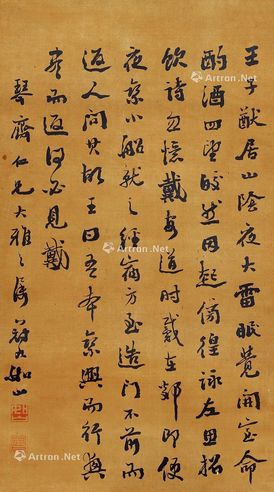 王子猷居山陰夜大雪眠覺開室命
酌酒四望皎然因起傍徨詠左思招
隱詩忽憶戴安道時戴在剡即便
夜乘小船就之經宿方至造門不前而
返人問其故王曰吾本乘興而行興
盡而返何必見戴
琴齋仁兄大雅之屬 冠九如山
Artron.Net
Artron.Net
Artron.Net
Artron.Net